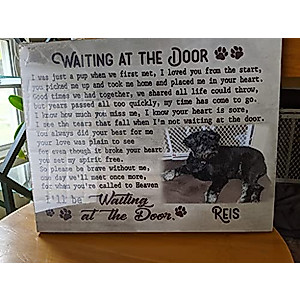 WAITING AT THE DOOR
I was just a pup when we first met, I loved you from the start,
you picked me up and took me home and placed me in your heart.
Good times we had together, we shared all life could throw,
but years passed all too quickly, my time has come to go.
I know how much you miss me, I know your heart is sore,
I see the tears that fall when I'm not waiting at the door.
You always did your best for me
your love was plain to see
For even though it broke your heart
you set my spirit free.
So please be brave without me,
one day we'll meet once more,
for when you're called to Heaven
I'll be Waiting
at the Door.
REIS